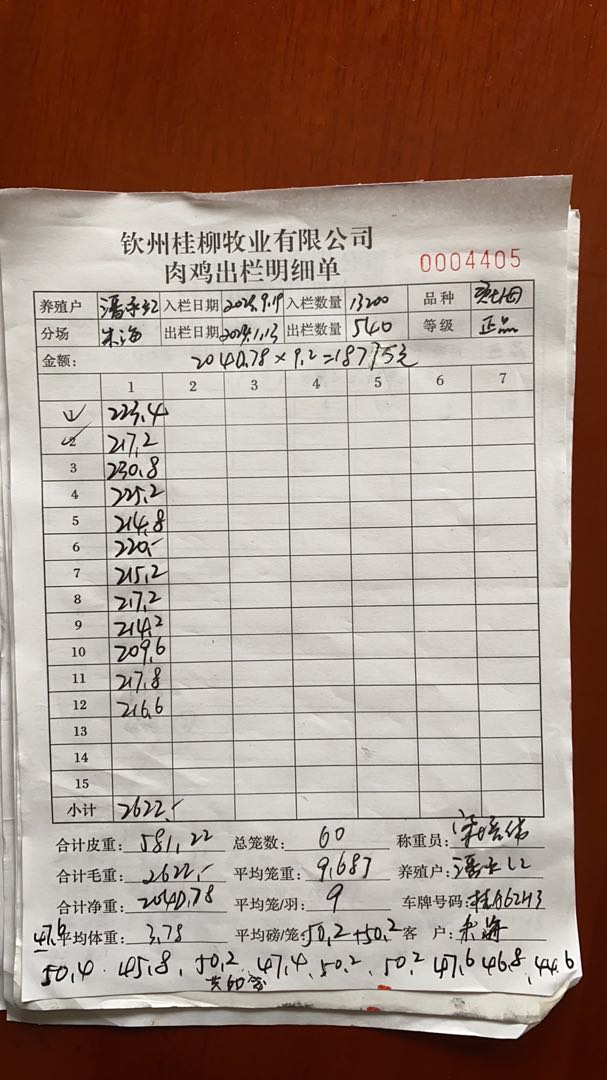 钦州桂柳牧业有限公司
肉鸡出栏明细单
0004405
养殖户 入栏日期 2023.9.19 入栏数量 13200 品种
分场 朱海 出栏日期 2024.1.13 出栏数量 540 等级 正品
金额: 2040.78×9.2=18775元
1 2 3 4 5 6 7
1 223.4
2 217.2
3 230.8
4 225.2
5 214.8
6 220.-
7 215.2
8 217.2
9 214.2
10 209.6
11 217.8
12 216.6
13
14
15
小计 2622.-
合计皮重: 581.22 总笼数: 60 称重员:
合计毛重: 2622.- 平均笼重: 9.687 养殖户:
合计净重: 2040.78 平均笼/羽: 9 车牌号码:
47.6 平均体重: 3.78 平均磅/笼: 50.2+50.2 客 户: 朱海
50.4 45.8 50.2 47.4 50.2 50.2 47.6 46.8 44.6
共60笼